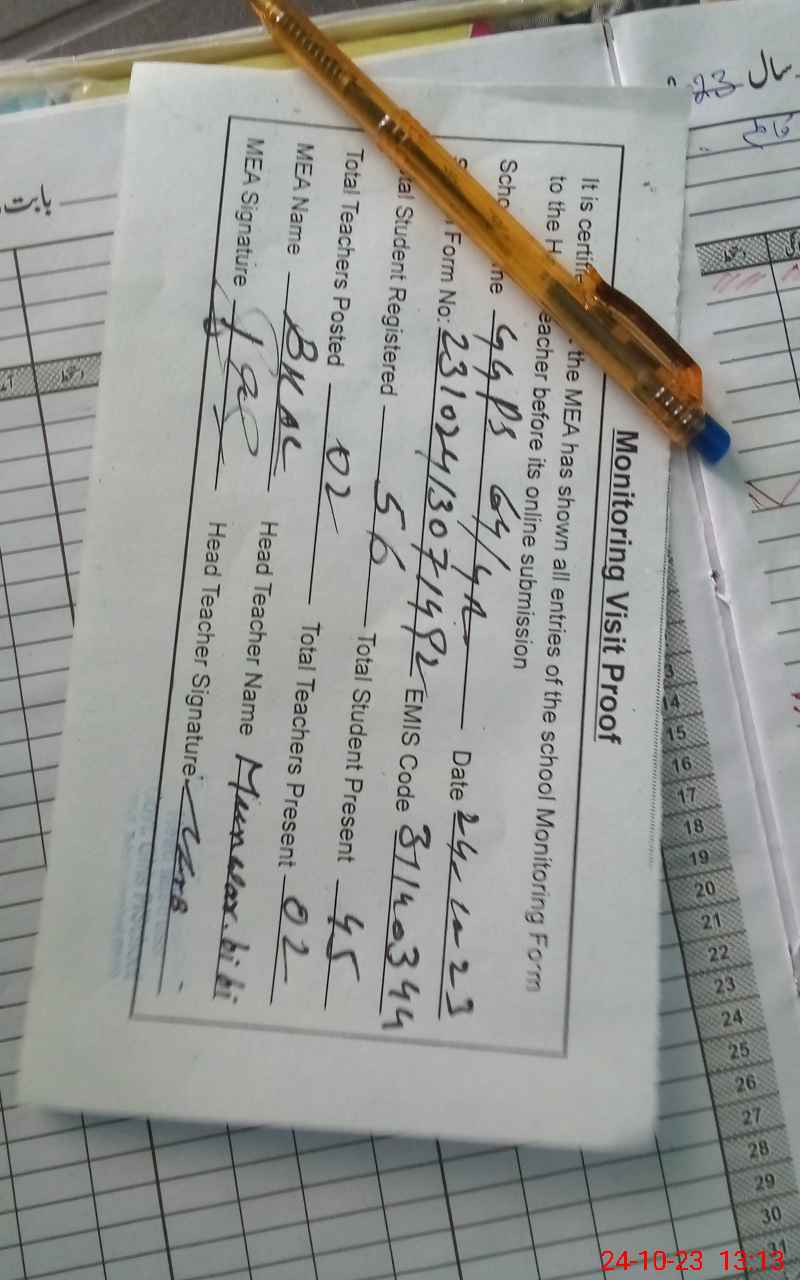 Monitoring Visit Proof
It is certifie the MEA has shown all entries of the school Monitoring Form
to the H eacher before its online submission
Scho me GGPS 64/4R Date 24-10-23
Form No: 23102413071492 EMIS Code 31140344
tal Student Registered 56 Total Student Present 45
Total Teachers Posted 02 Total Teachers Present 02
MEA Name Head Teacher Name Munawar bibi
MEA Signature Head Teacher Signature:
سال
23
بابت
14
15
16
17
18
19
20
21
22
23
24
25
26
27
28
29
30
31
24-10-23 13:13